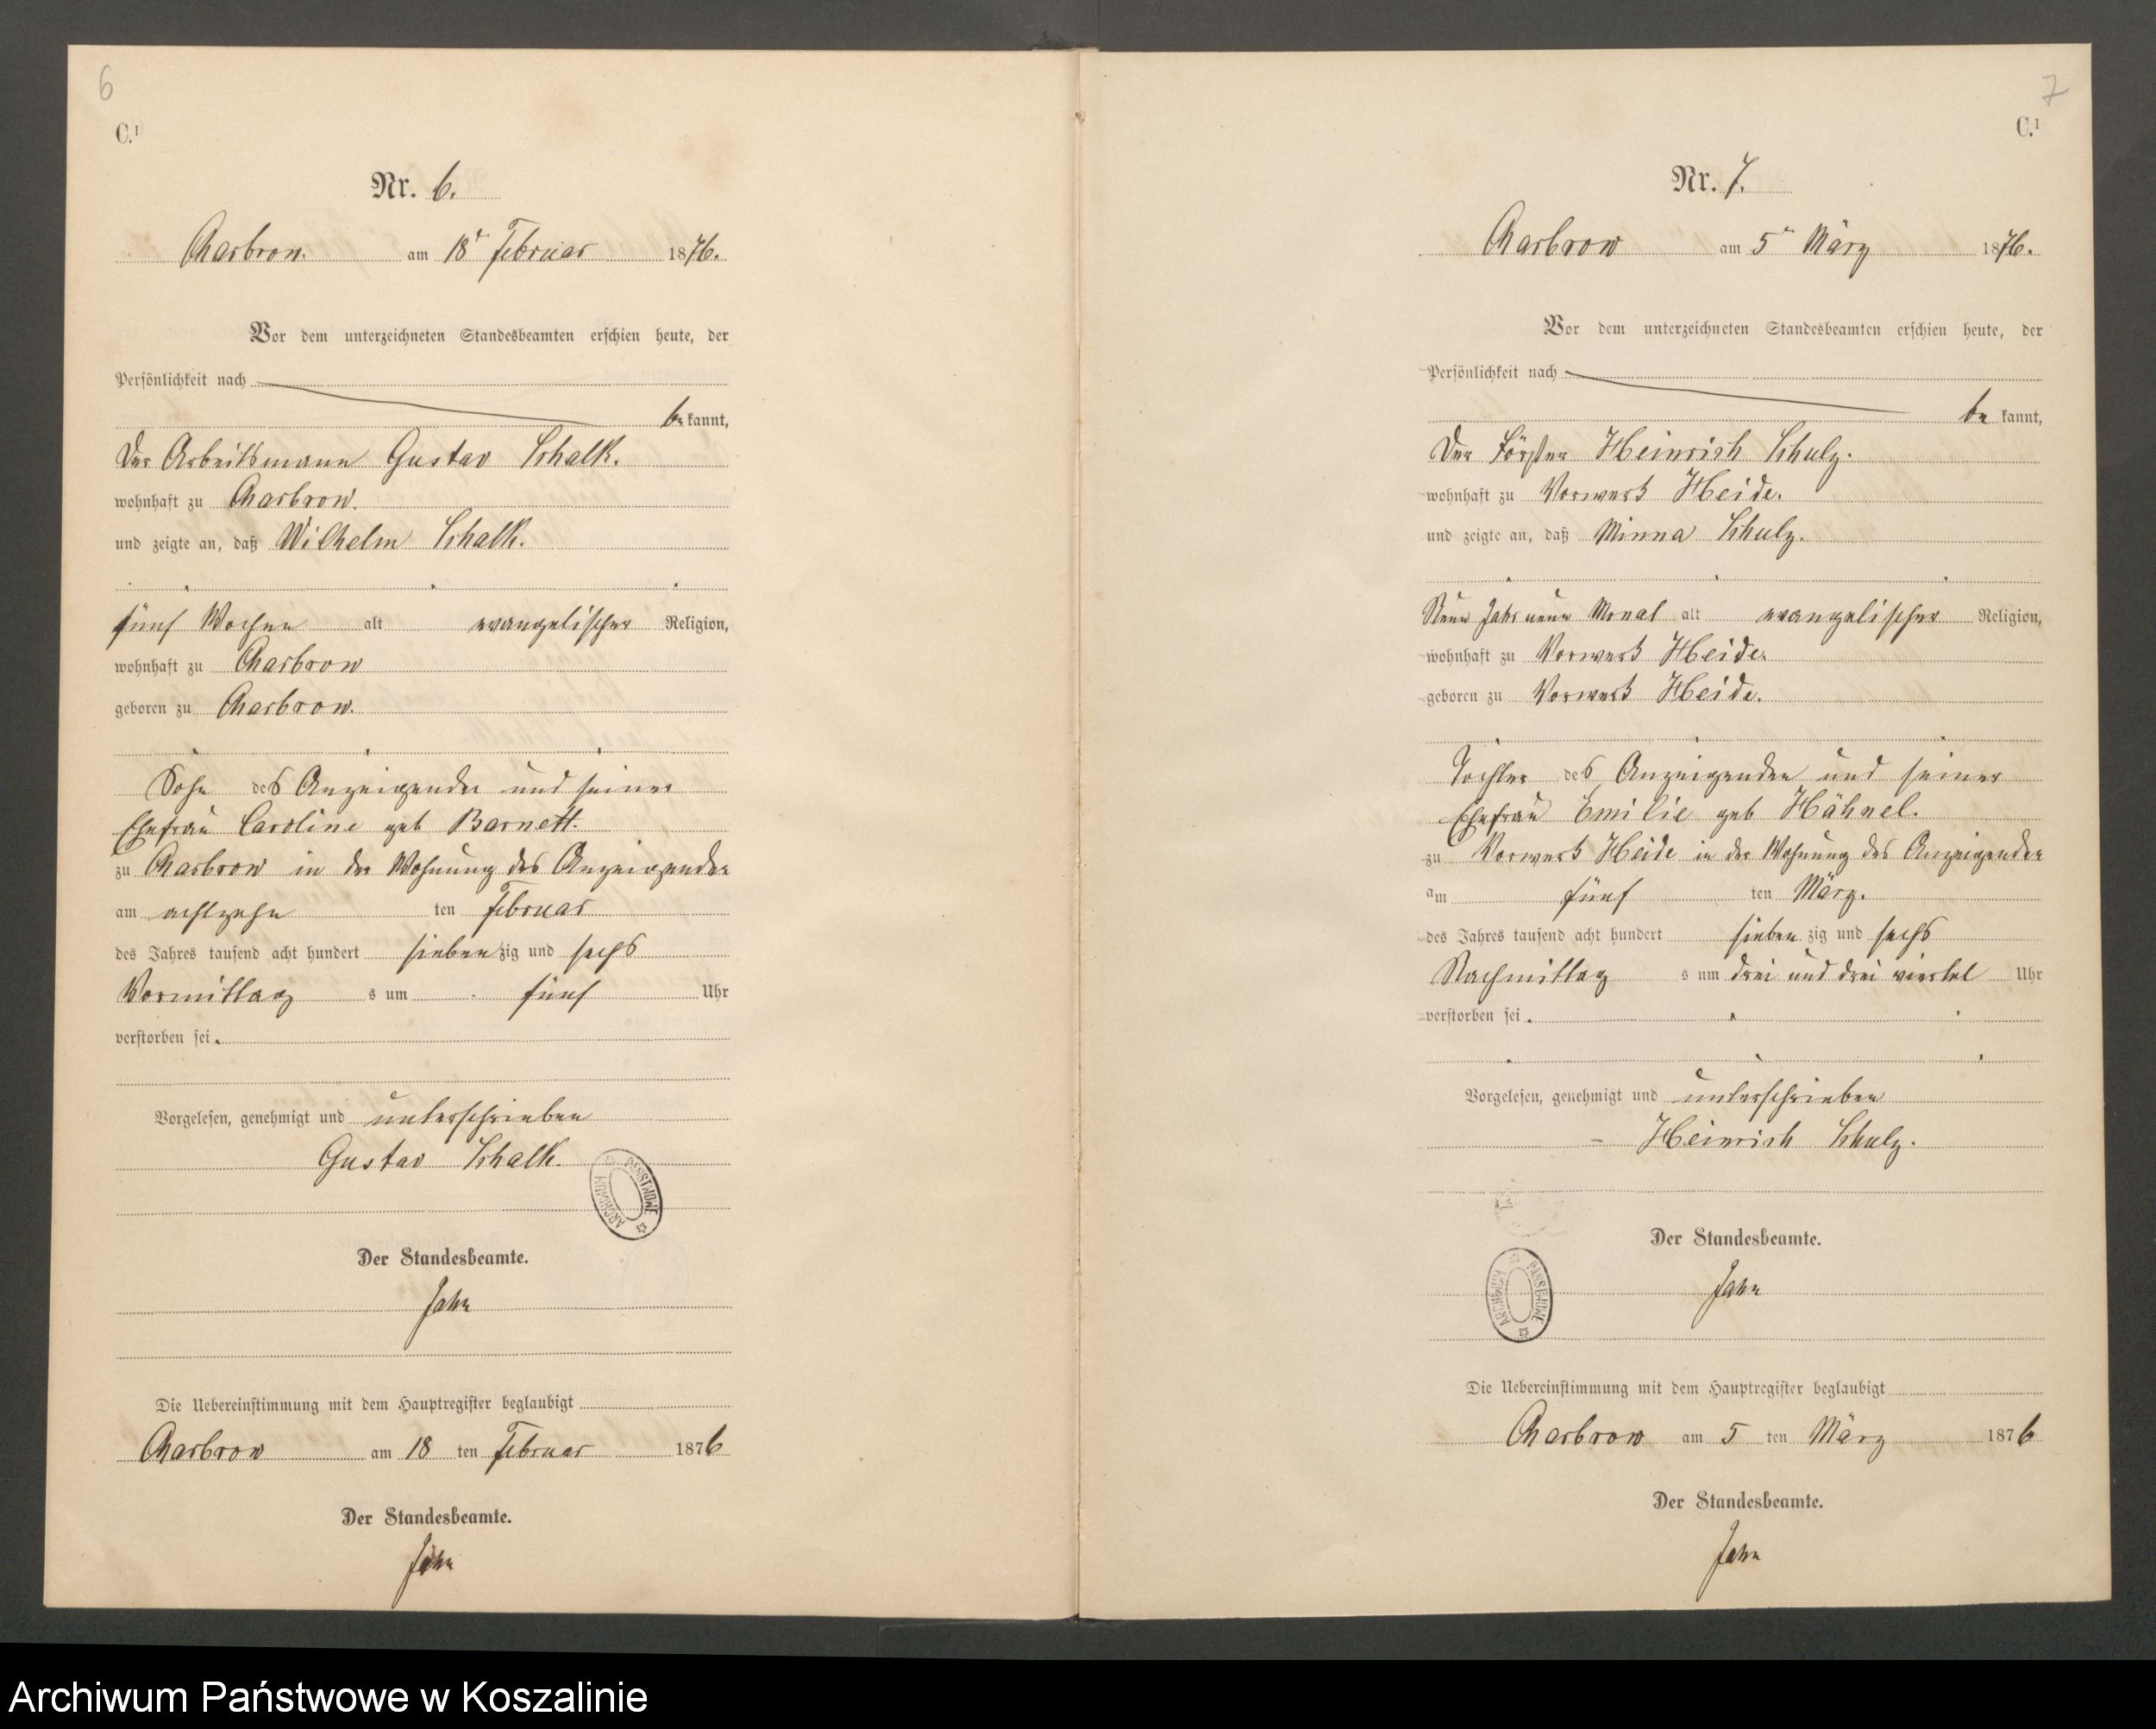 6
C.¹
Nr. 6.
Charbrow. am 18t Februar 1876.
Vor dem unterzeichneten Standesbeamten erschien heute, der
Persönlichkeit nach
be kannt,
Der Arbeitsmann Gustav Schalk.
wohnhaft zu Charbrow.
und zeigte an, daß Wilhelm Schalk.
fünf Wochen alt evangelischer Religion,
wohnhaft zu Charbrow
geboren zu Charbrow.
Sohn des Anzeigenden und seiner
Ehefrau Caroline geb Barnett.
zu Charbrow in der Wohnung des Anzeigenden
am achtzehn ten Februar
des Jahres tausend acht hundert sieben zig und sechs
Vormittag s um fünf Uhr
verstorben sei.
Vorgelesen, genehmigt und unterschrieben
Gustav Schalk.
ARCHIWUM PAŃSTWOWE
Der Standesbeamte.
Jahn
Die Uebereinstimmung mit dem Hauptregister beglaubigt
Charbrow am 18 ten Februar 1876
Der Standesbeamte.
Jahn
7
C.¹
Nr. 7.
Charbrow am 5t März 1876.
Vor dem unterzeichneten Standesbeamten erschien heute, der
Persönlichkeit nach
be kannt,
Der Förster Heinrich Schulz.
wohnhaft zu Vorwerk Heide.
und zeigte an, daß Minna Schulz.
Neun Jahr neun Monat alt evangelischer Religion,
wohnhaft zu Vorwerk Heide.
geboren zu Vorwerk Heide.
Tochter des Anzeigenden und seiner
Ehefrau Emilie geb Hähnel.
zu Vorwerk Heide in der Wohnung des Anzeigenden
am fünf ten März.
des Jahres tausend acht hundert sieben zig und sechs
Nachmittag s um drei und drei viertel Uhr
verstorben sei.
Vorgelesen, genehmigt und unterschrieben
Heinrich Schulz.
Der Standesbeamte.
Jahn
Die Uebereinstimmung mit dem Hauptregister beglaubigt
Charbrow am 5 ten März 1876
Der Standesbeamte.
Jahn
Archiwum Państwowe w Koszalinie